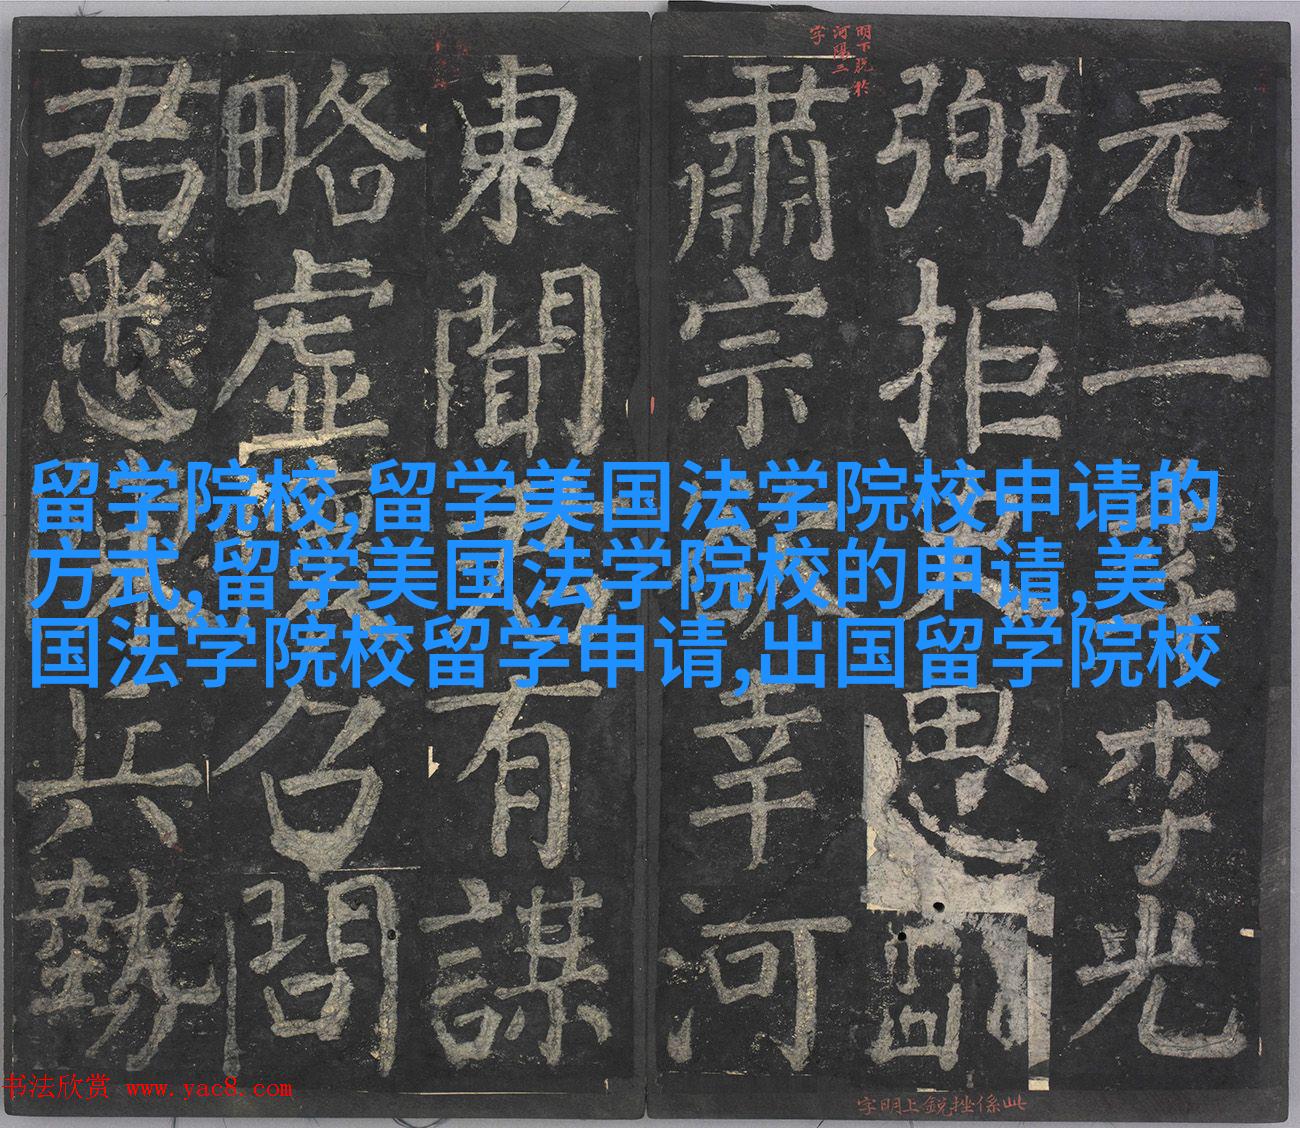 明下脱於
河陽二
字
元二李光
弼拒思
肅宗幸河
東聞有謀
略虛召問
君悉兵勢
留学院校,留学美国法学院校申请的
方式,留学美国法学院校的申请,美
国法学院校留学申请,出国留学院校
此係挫銳上明字
书法欣赏 www.yac8.com